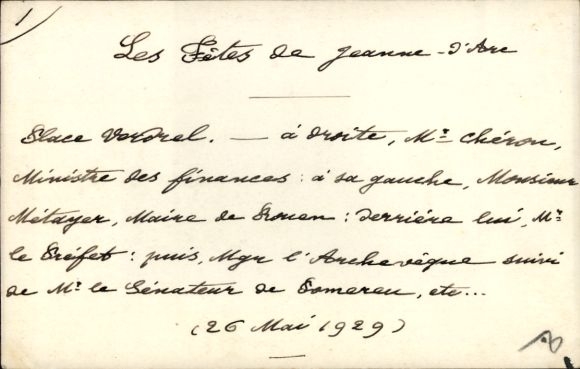 1)
Les Fêtes de Jeanne-d'Arc
Place Verdrel. — à droite, Mr Chéron,
Ministre des finances : à sa gauche, Monsieur
Métayer, Maire de Rouen : derrière lui, Mr
le Préfet : puis, Mgr l'Archevêque suivi
de Mr le Sénateur de Pomereu, etc...
(26 Mai 1929)